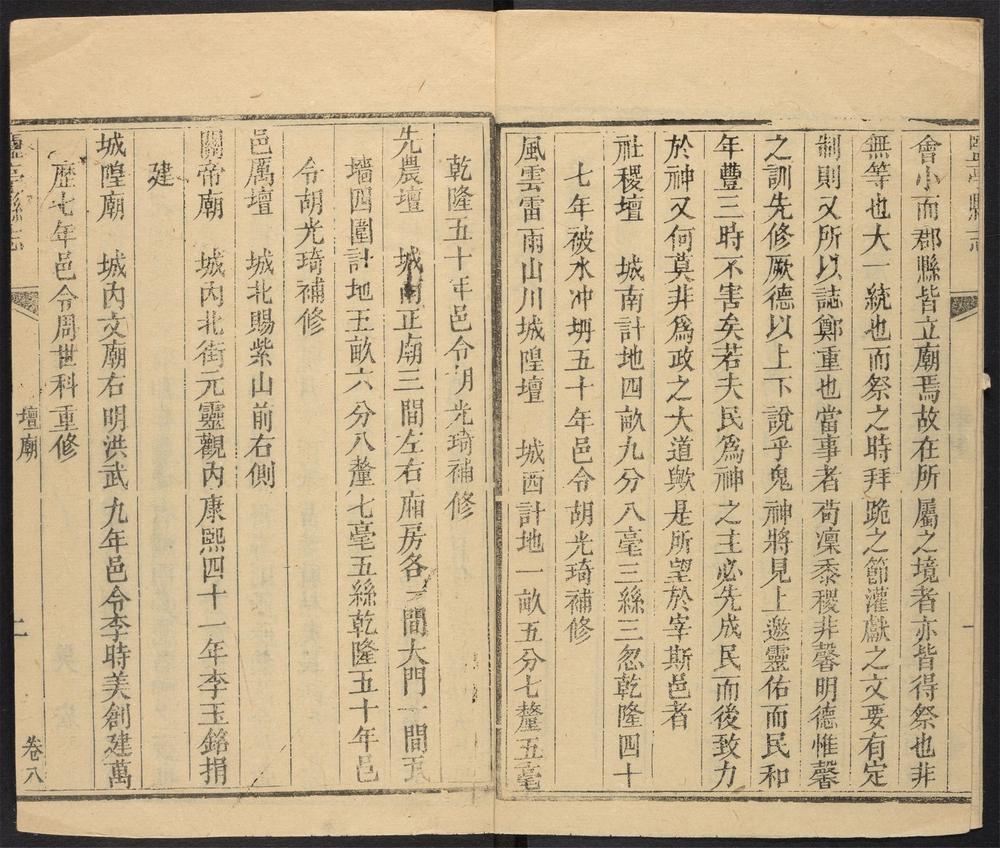 鹽亭縣志
會小而郡縣皆立廟焉故在所屬之境者亦皆得祭也非
無等也大一統也而祭之時拜跪之節灌獻之文要有定
制則又所以誌鄭重也當事者苟凜黍稷非馨明德惟馨
之訓先修厥德以上下說乎鬼神將見上邀靈佑而民和
年豐三時不害矣若夫民為神之主必先成民而後致力
於神又何莫非為政之大道歟是所望於宰斯邑者
社稷壇 城南計地四畝九分八毫三絲三忽乾隆四十
七年被水冲坍五十年邑令胡光琦補修
風雲雷雨山川城隍壇 城西計地一畝五分七釐五毫
乾隆五十年邑令胡光琦補修
先農壇 城南正廟三間左右廂房各三間大門一間
墻四圍計地五畝六分八釐七毫五絲乾隆五十年邑
令胡光琦補修
邑厲壇 城北賜紫山前右側
關帝廟 城內北街元靈觀內康熙四十一年李玉銘捐
建
城隍廟 城內文廟右明洪武九年邑令李時美創建萬
歷七年邑令周世科重修
鹽亭縣志 壇廟 二 卷八